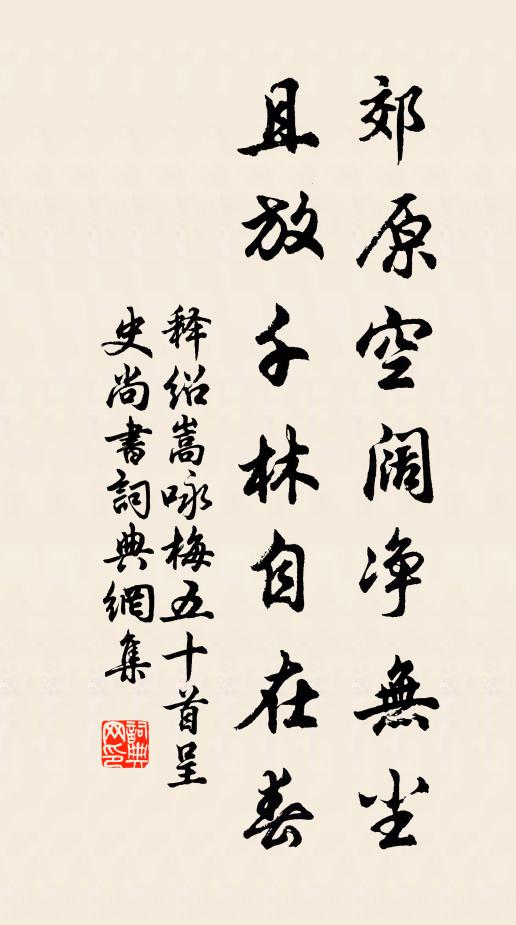 郊原空阔净無尘
且放千林自在春
释绍嵩咏梅五十首呈
史尚書詞典網集
詞典网印